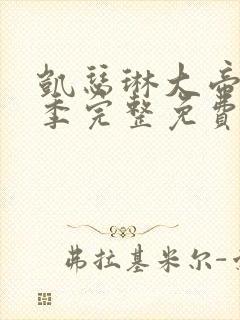 凱瑟琳大帝
季完整免費
弗拉基米尔-